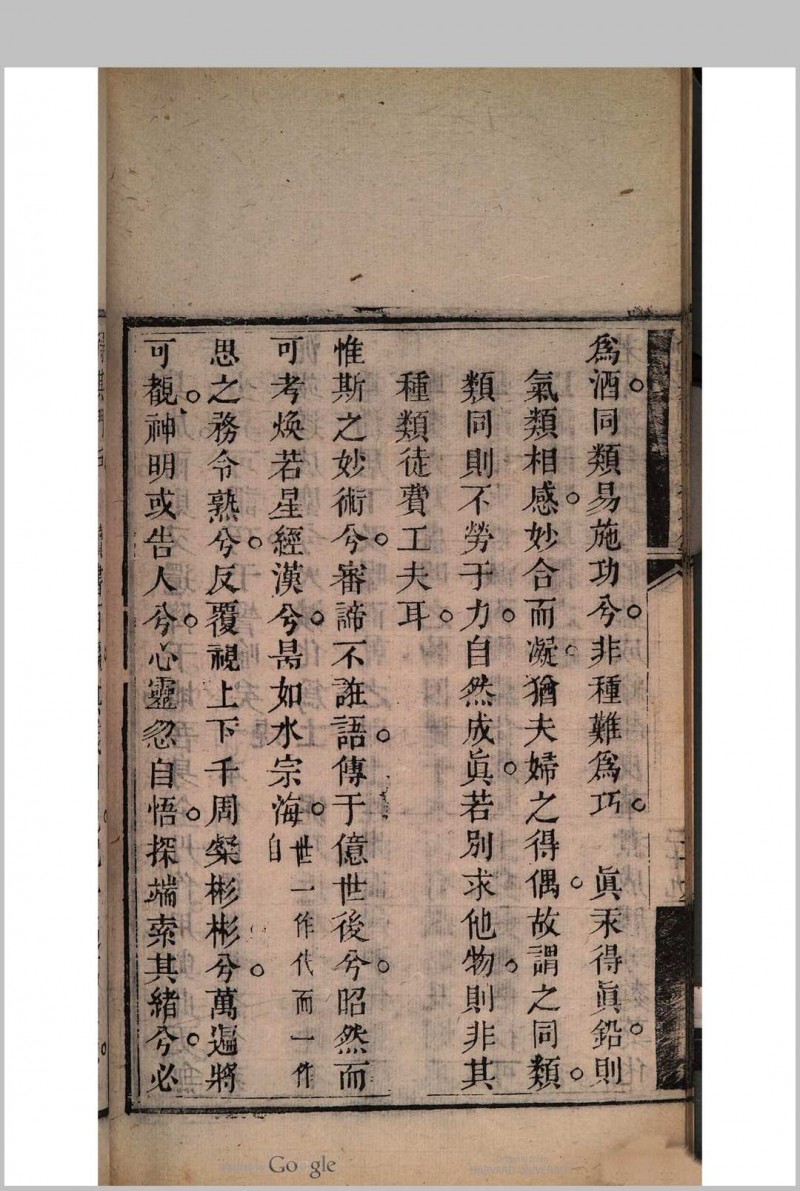 為酒同類易施功兮非種難為巧　眞汞得眞鉛則
氣類相感妙合而凝猶夫婦之得偶故謂之同類
類同則不勞于力自然成眞若別求他物則非其
種類徒費工夫耳
惟斯之妙術兮審諦不誑語傳于億世後兮昭然而
可考煥若星經漢兮昺如水宗海世一作代而一作自
思之務令熟兮反覆視上下千周粲彬彬兮萬遍將
可覩神明或告人兮心靈忽自悟探端索其緒兮必
Google